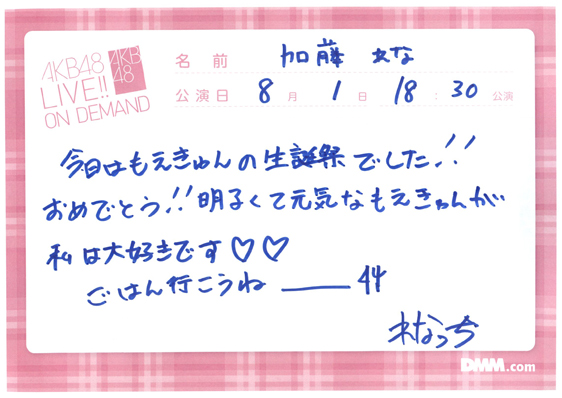 AKB48
LIVE!!
ON DEMAND
AKB
48
名前 加藤 玲な
公演日 8月 1日 18:30 公演
今日はもえきゅんの生誕祭でした!!
おめでとう!!明るくて元気なもえきゅんが
私は大好きです♡♡
ごはん行こうね ——— 44
れなっち
DMM.com